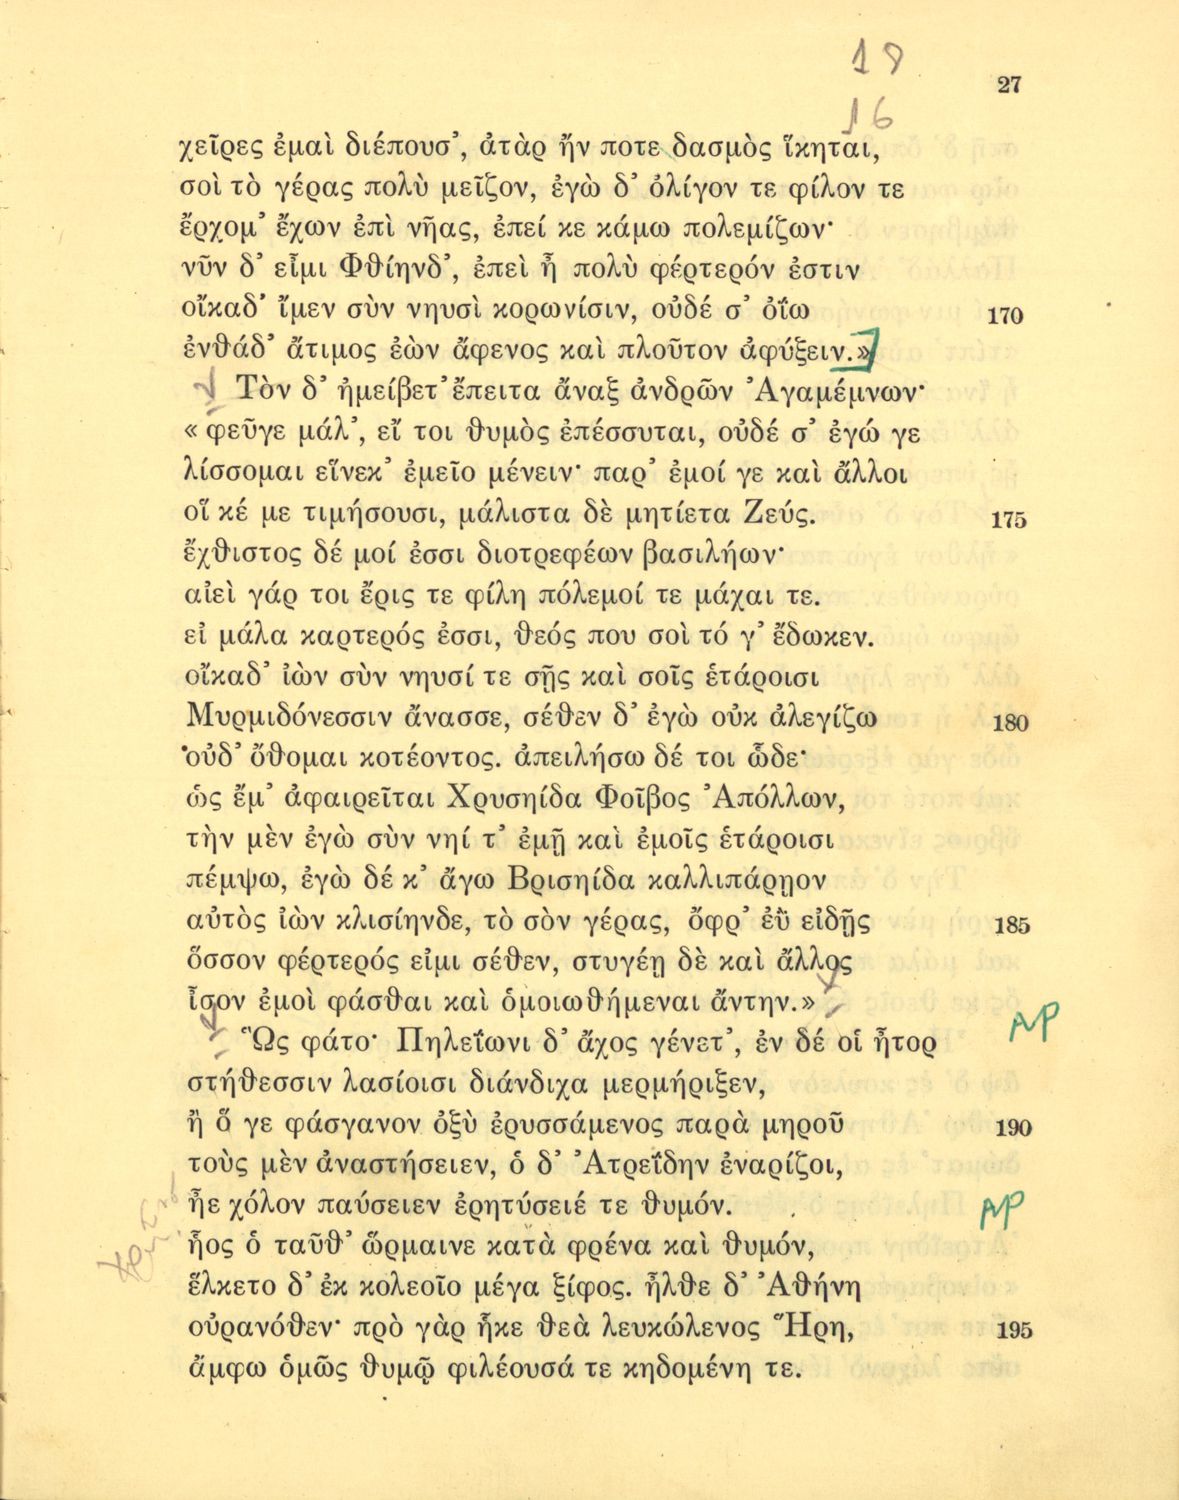 18
27
16
χεῖρες ἐμαὶ διέπουσ’, ἀτὰρ ἤν ποτε δασμὸς ἵκηται,
σοὶ τὸ γέρας πολὺ μεῖζον, ἐγὼ δ’ ὀλίγον τε φίλον τε
ἔρχομ’ ἔχων ἐπὶ νῆας, ἐπεί κε κάμω πολεμίζων·
νῦν δ’ εἶμι Φθίηνδ’, ἐπεὶ ἦ πολὺ φέρτερόν ἐστιν
οἴκαδ’ ἴμεν σὺν νηυσὶ κορωνίσιν, οὐδέ σ’ ὀΐω 170
ἐνθάδ’ ἄτιμος ἐὼν ἄφενος καὶ πλοῦτον ἀφύξειν.»
Τὸν δ’ ἠμείβετ’ ἔπειτα ἄναξ ἀνδρῶν Ἀγαμέμνων·
«φεῦγε μάλ’, εἴ τοι θυμὸς ἐπέσσυται, οὐδέ σ’ ἐγώ γε
λίσσομαι εἵνεκ’ ἐμεῖο μένειν· παρ’ ἐμοί γε καὶ ἄλλοι
οἵ κέ με τιμήσουσι, μάλιστα δὲ μητίετα Ζεύς. 175
ἔχθιστος δέ μοί ἐσσι διοτρεφέων βασιλήων·
αἰεὶ γάρ τοι ἔρις τε φίλη πόλεμοί τε μάχαι τε.
εἰ μάλα καρτερός ἐσσι, θεός που σοὶ τό γ’ ἔδωκεν.
οἴκαδ’ ἰὼν σὺν νηυσί τε σῇς καὶ σοῖς ἑτάροισι
Μυρμιδόνεσσιν ἄνασσε, σέθεν δ’ ἐγὼ οὐκ ἀλεγίζω 180
οὐδ’ ὄθομαι κοτέοντος. ἀπειλήσω δέ τοι ὧδε·
ὡς ἔμ’ ἀφαιρεῖται Χρυσηίδα Φοῖβος Ἀπόλλων,
τὴν μὲν ἐγὼ σὺν νηί τ’ ἐμῇ καὶ ἐμοῖς ἑτάροισι
πέμψω, ἐγὼ δέ κ’ ἄγω Βρισηίδα καλλιπάρῃον
αὐτὸς ἰὼν κλισίηνδε, τὸ σὸν γέρας, ὄφρ’ ἐῢ εἰδῇς 185
ὅσσον φέρτερός εἰμι σέθεν, στυγέῃ δὲ καὶ ἄλλος
ἶσον ἐμοὶ φάσθαι καὶ ὁμοιωθήμεναι ἄντην.»
ΑΡ
Ὣς φάτο· Πηλεΐωνι δ’ ἄχος γένετ’, ἐν δέ οἱ ἦτορ
στήθεσσιν λασίοισι διάνδιχα μερμήριξεν,
ἢ ὅ γε φάσγανον ὀξὺ ἐρυσσάμενος παρὰ μηροῦ 190
τοὺς μὲν ἀναστήσειεν, ὁ δ’ Ἀτρεΐδην ἐναρίζοι,
ἦε χόλον παύσειεν ἐρητύσειέ τε θυμόν.
ΑΡ
ἧος ὁ ταῦθ’ ὥρμαινε κατὰ φρένα καὶ θυμόν,
ἕλκετο δ’ ἐκ κολεοῖο μέγα ξίφος. ἦλθε δ’ Ἀθήνη
οὐρανόθεν· πρὸ γὰρ ἧκε θεὰ λευκώλενος Ἥρη, 195
ἄμφω ὁμῶς θυμῷ φιλέουσά τε κηδομένη τε.